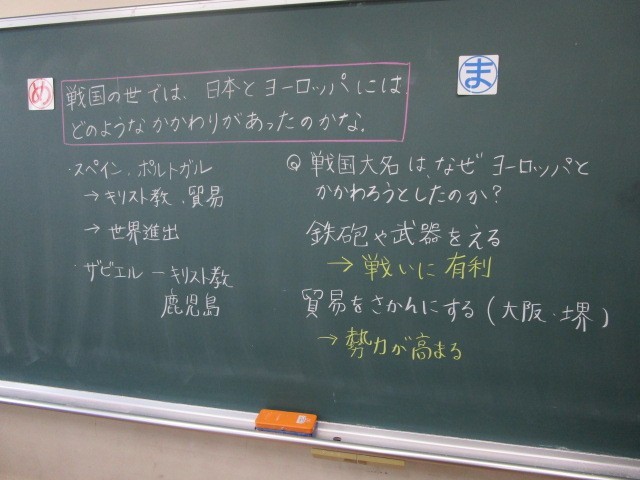 め
戦国の世では、日本とヨーロッパには
どのようなかかわりがあったのかな.
・スペイン.ポルトガル
→キリスト教.貿易
→世界進出
・ザビエルーキリスト教
鹿児島
ま
Q 戦国大名は、なぜヨーロッパと
かかわろうとしたのか?
鉄砲や武器をえる
→戦いに有利
貿易をさかんにする(大阪・堺)
→勢力が高まる